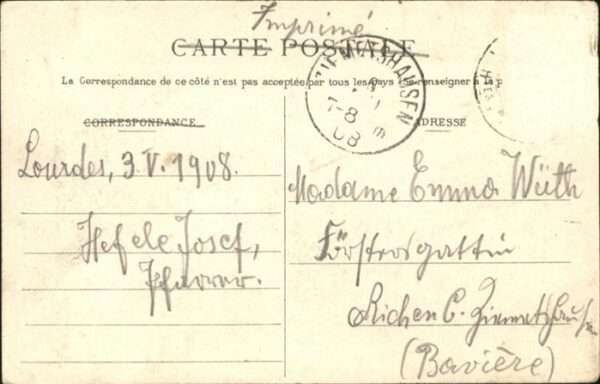 Imprimé
CARTE POSTALE
La Correspondance de ce côté n'est pas acceptée par tous les Pays (Se renseigner à la p
ZIEMETSHAUSEN
7-8
08
CORRESPONDANCE
ADRESSE
Lourdes, 3 V. 1908.
Hefele Josef,
Pfarrer.
Madame Emma Wüth
Förstersgattin
Eichen b. Ziemetshausen
(Bavière)